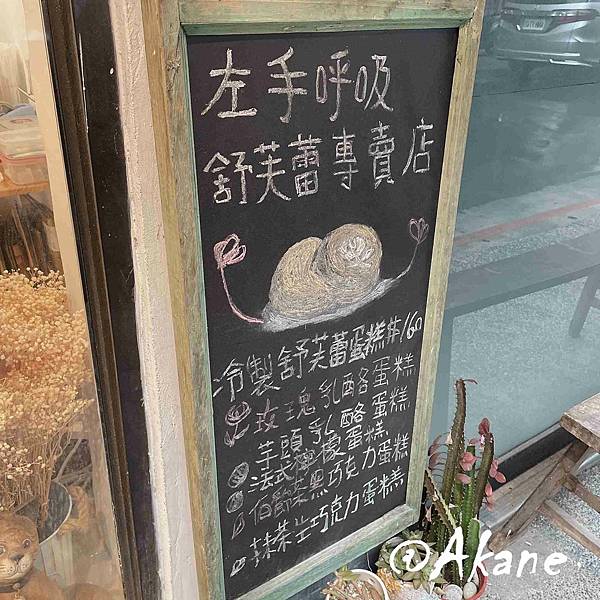 左手呼吸
舒芙蕾專賣店
冷製舒芙蕾蛋糕$160
玫瑰乳酪蛋糕
芋頭乳酪蛋糕
法式檸檬蛋糕
伯爵茶黑巧克力蛋糕
抹茶生巧克力蛋糕
@Akane